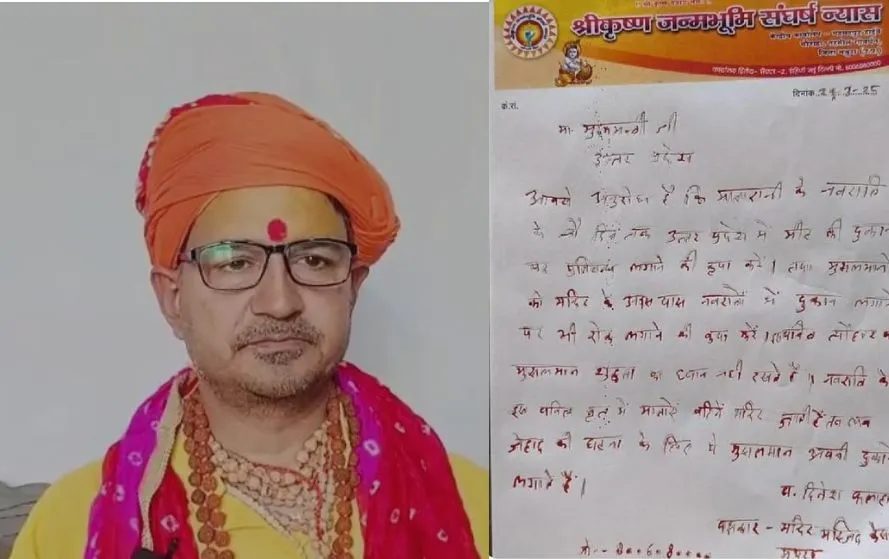 श्रीकृष्ण जन्मभूमि संघर्ष न्यास
दिनांक
क्र.सं.
मा. मुख्यमन्त्री जी
उत्तर प्रदेश
आपसे अनुरोध है कि मातारानी के नवरात्रि
के नौ दिन तक उत्तर प्रदेश में मीट की दुकान
पर प्रतिबन्ध लगाने की कृपा करें। तथा मुसलमानो
को मंदिर के आस पास नवरात्रों में दुकान लगाने
पर भी रोक लगाने की कृपा करें। त्यौहार
मुसलमान शुद्धता का ध्यान नही रखते हैं। नवरात्रि के
इस पवित्र में मातायें बहिनें मंदिर जाती हैं तब लव
जेहाद की घटना के लिए ये मुसलमान अपनी दुकाने
लगाते हैं।
पं. दिनेश
पक्षकार - मंदिर मस्जिद